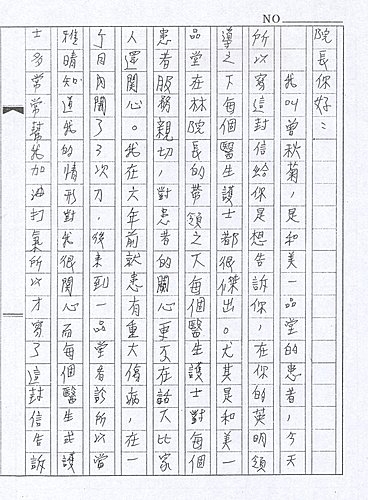 NO
院長你好：
我叫曾秋菊，是和美一品堂的患者，今天
所以寫這封信給你是想告訴你，在你的英明領
導之下每個醫生護士都很傑出。尤其是和美一
品堂在林院長的帶領之下每個醫生護士對每個
患者服務親切，對患者的關心更不在話下比家
人還關心。我在六年前就患有重大傷病，在一
个月內開了3次刀，後來到一品堂看診所以當
雅晴知道我的情形對我很關心而每個醫生或護
士多常常幫我加油打氣所以才寫了這封信告訴